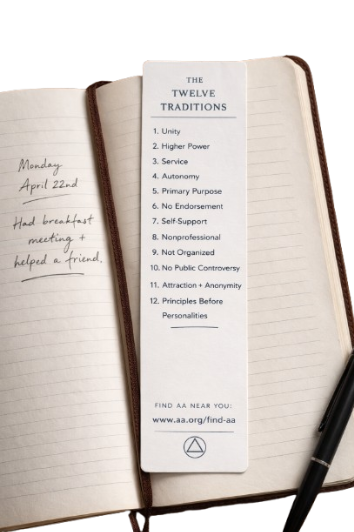 Monday
April 22nd
Had breakfast
meeting +
helped a friend.
THE
TWELVE
TRADITIONS
1. Unity
2. Higher Power
3. Service
4. Autonomy
5. Primary Purpose
6. No Endorsement
7. Self-Support
8. Nonprofessional
9. Not Organized
10. No Public Controversy
11. Attraction + Anonymity
12. Principles Before
Personalities
FIND AA NEAR YOU:
www.aa.org/find-aa